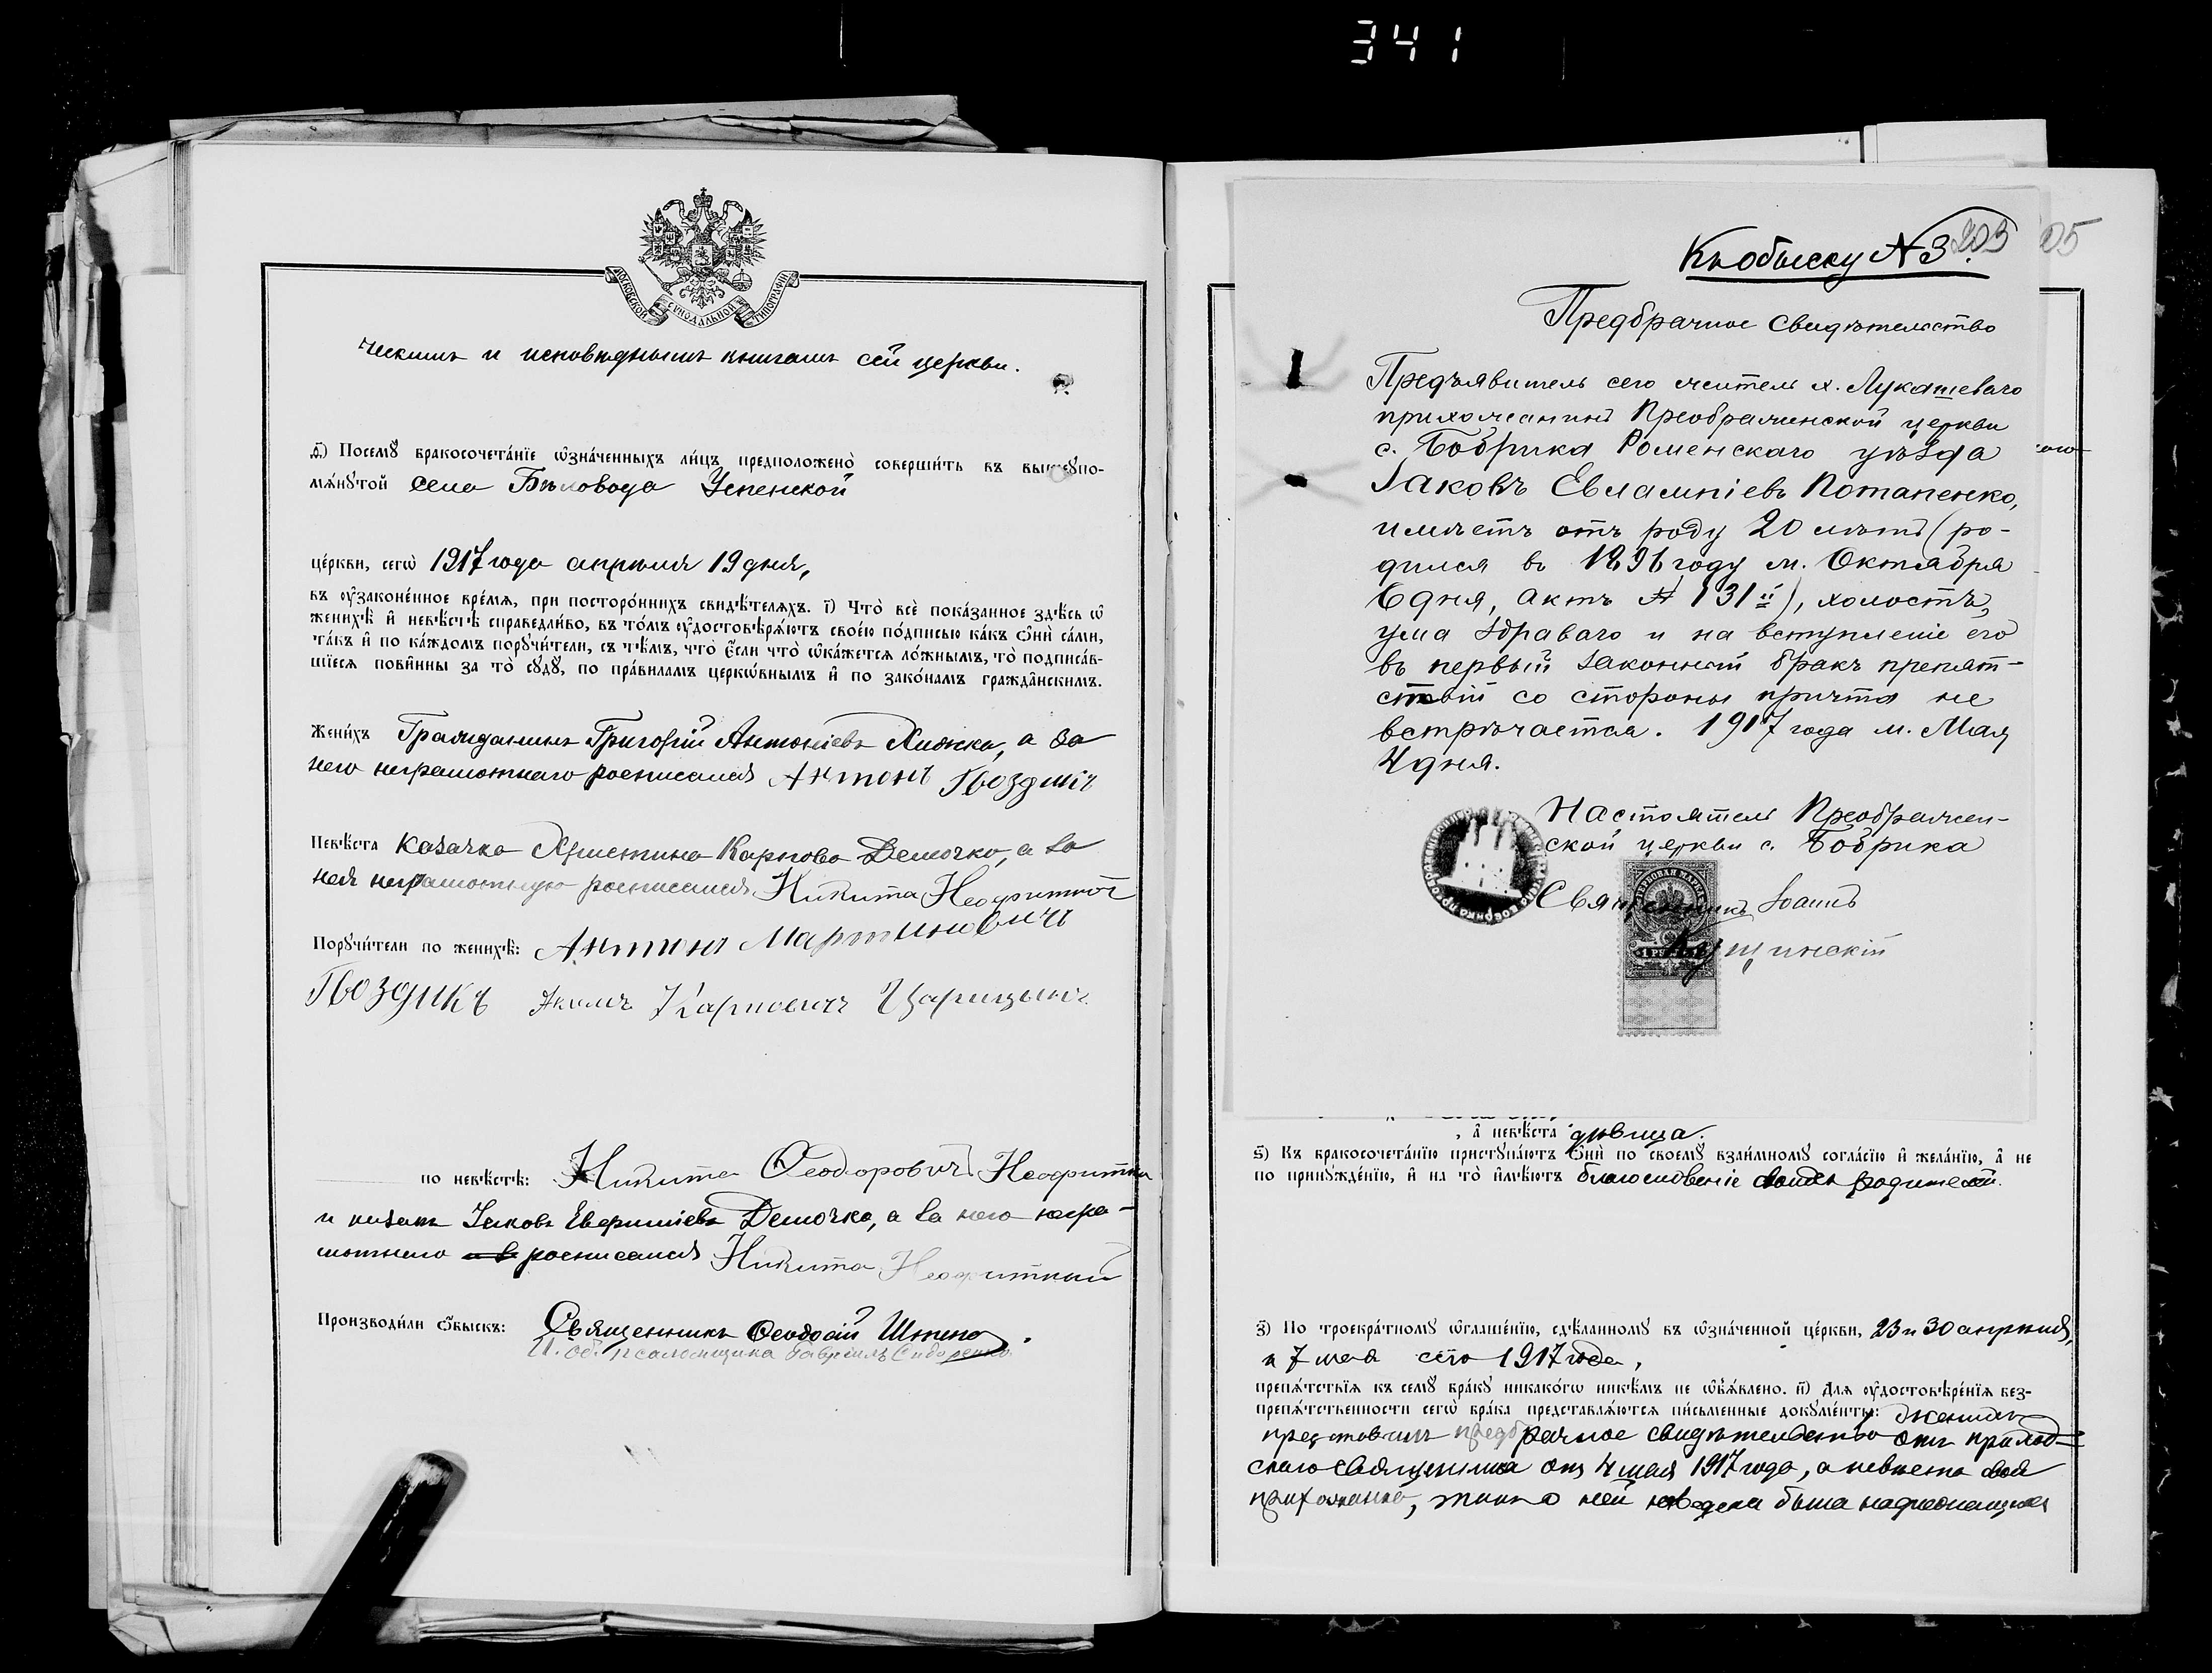 341
МОСКОВСКОЙ СѴНОДАЛЬНОЙ ТИПОГРАФІИ
ческимъ и исповѣднымъ книгамъ сей церкви.
д҃) Посемꙋ бракосочета́нїе ѡ҆зна́ченныхъ ли́цъ предположено̀ соверши́ть въ вышеꙋпо-
мѧ́нꙋтой села Бѣловода Успенской
це́ркви, сегѡ̀ 1917 года апрѣля 19 дня,
въ ᲂу҆зако́ненное вре́мѧ, при посторо́ннихъ свидѣ́телѧхъ. і҃) Что̀ всѐ пока́занное здѣ́сь ѡ҆
женихѣ̀ и҆ невѣ́стѣ справедли́во, въ то́мъ ᲂу҆достовѣрѧ́ютъ свое́ю по́дписью ка́къ ѻ҆нѝ са́ми,
та́къ и҆ по ка́ждомъ порꙋчи́тели, съ тѣ́мъ, что̀ є҆́сли что̀ ѡ҆ка́жетсѧ ло́жнымъ, то̀ подписа́в-
шїесѧ пови́нны за то̀ сꙋдꙋ̀, по пра́виламъ церкѡ́внымъ и҆ по зако́намъ гражда́нскимъ.
Жени́хъ Гражданинъ Григорій Антоніевъ Хижка, а за
него неграмотнаго росписался Антонъ Гвоздикъ
Невѣ́ста казачка Христина Карпова Демочко, а за
нея неграмотную росписался Никита Неофитный
Порꙋчи́тели по женихѣ̀: Антонъ Мартиновичъ
Гвоздикъ Акимъ Карповичъ Царицынъ
по невѣ́стѣ: Никита Ѳеодоровичъ Неофитный
и казакъ Іаковъ Евфиміевъ Демочко, а за него негра-
мотнаго росписался Никита Неофитный
Производи́ли ѻ҆́быскъ: Священникъ Ѳеодосій Штепа.
И. об. псаломщика Гавріилъ Сидоренко
Къ обыску № 3. 203 05
Предбрачное свидѣтельство
Предъявитель сего житель х. Лукашеваго
прихожанинъ Преображенской церкви
с. Бобрика Роменскаго уѣзда
Іаковъ Евлампіевъ Потапенко,
имѣетъ отъ роду 20 лѣтъ (ро-
дился въ 1896 году м. Октября
6 дня, актъ № 131й), холостъ,
ума здраваго и на вступленіе его
въ первый законный бракъ препят-
ствій со стороны причта не
встрѣчается. 1917 года м. Мая
4 дня.
Настоятель Преображен-
ской церкви с. Бобрика
Священникъ Іоаннъ
ГЕРБОВАЯ МАРКА
1 РУБ
, а҆ невѣ́ста дѣвица.
ѕ҃) Къ бракосочета́нїю пристꙋпа́ютъ ѻ҆нѝ по своемꙋ̀ взаи́мномꙋ согла́сїю и҆ жела́нїю, а҆ не
по принꙋжде́нїю, и҆ на то̀ и҆мѣ́ютъ благословеніе своихъ родителей.
з҃) По троекра́тномꙋ ѡ҆глаше́нїю, сдѣ́ланномꙋ въ ѡ҆зна́ченной це́ркви, 23 и 30 апрѣля,
и 7 мая сего 1917 года,
препѧ́тствїѧ къ семꙋ̀ бра́кꙋ никако́гѡ никѣ́мъ не ѡ҆б̾ѧ́влено. и҃) Длѧ ᲂу҆достовѣре́нїѧ без-
препѧ́тственности сегѡ̀ бра́ка представлѧ́ютсѧ пи́сьменные докꙋме́нты: женихъ
представилъ предбрачное свидѣтельство отъ приход-
скаго священника отъ 4 мая 1917 года, а невѣста своя
прихожанка, и о ней наведена была надлежащая